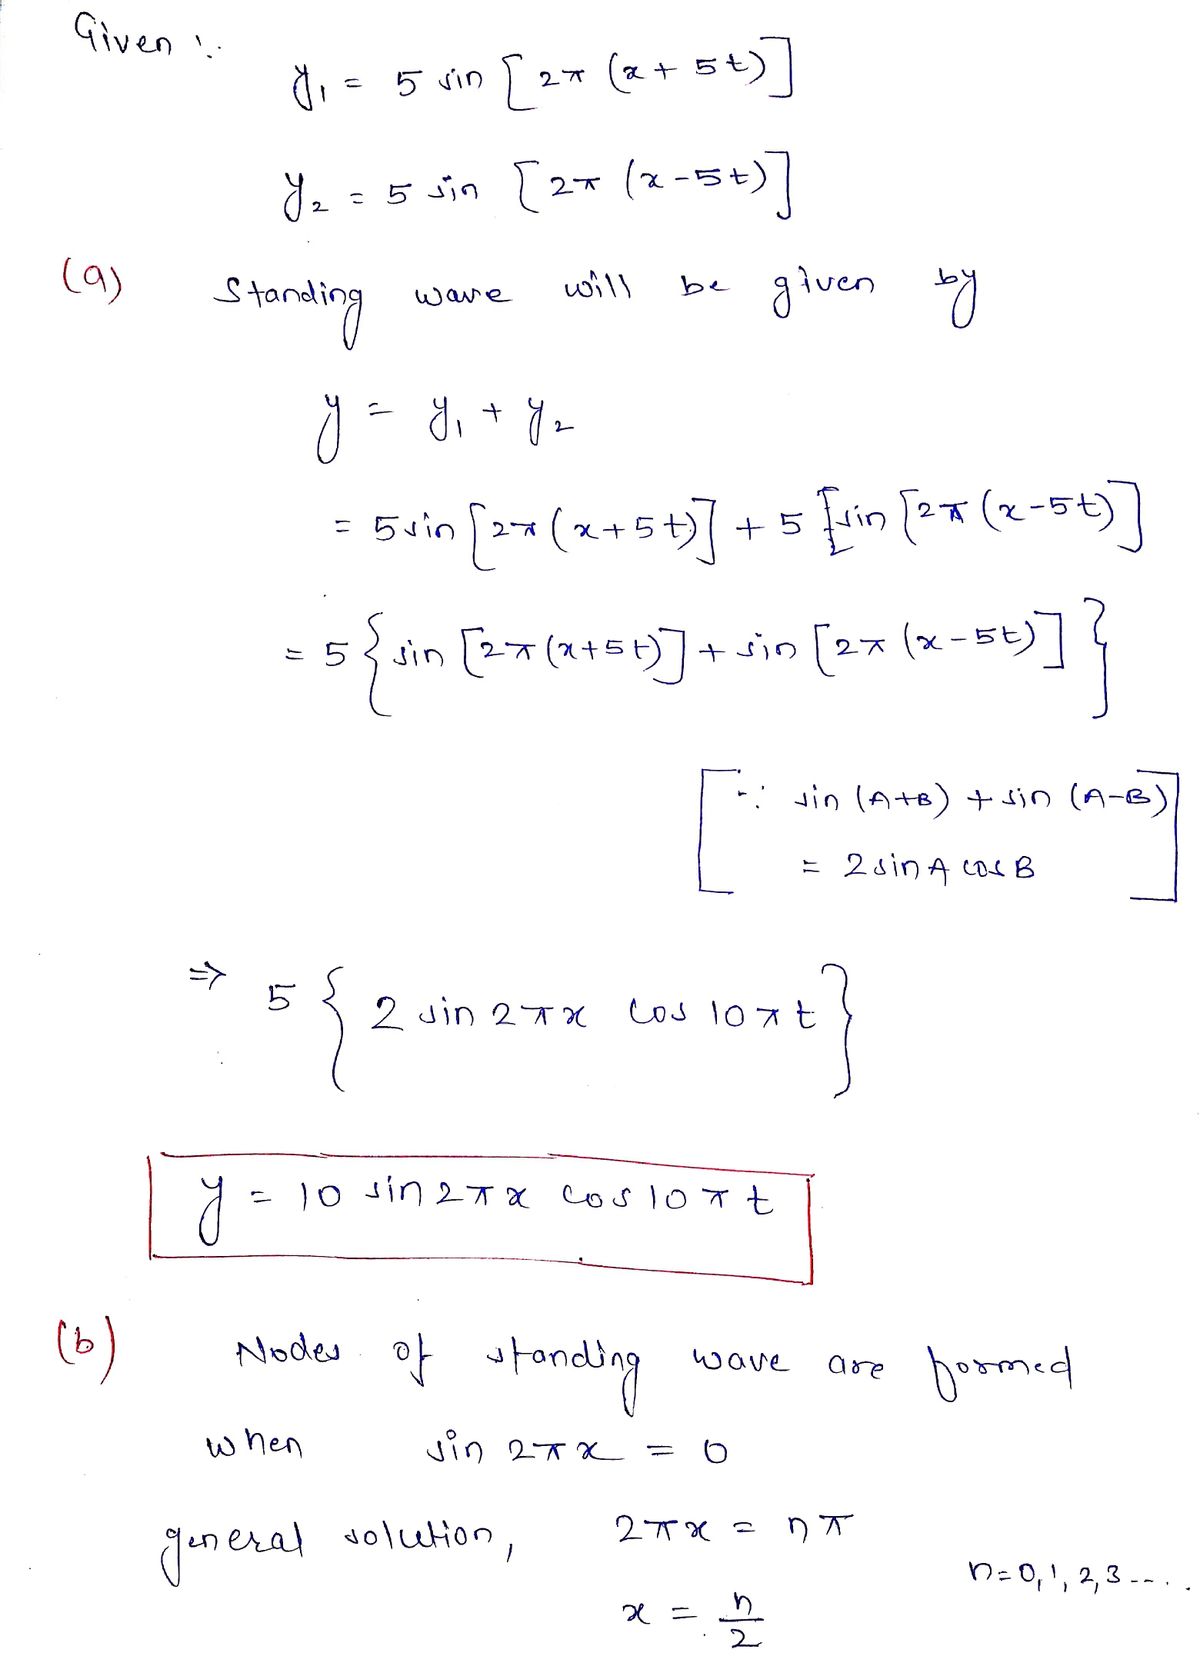 Given :.
y₁ = 5 sin [2π (x + 5t)]
y₂ = 5 sin [2π (x - 5t)]
(a) Standing wave will be given by
y = y₁ + y₂
= 5 sin [2π (x + 5t)] + 5 [sin [2π (x - 5t)]
= 5 { sin [2π (x + 5t)] + sin [2π (x - 5t)] }
[ ∵ sin (A+B) + sin (A-B)
= 2 sin A cos B ]
⇒ 5 { 2 sin 2πx cos 10πt }
y = 10 sin 2πx cos 10πt
(b) Nodes of standing wave are formed
when sin 2πx = 0
general solution, 2πx = nπ
n = 0, 1, 2, 3 ----.
x = n/2